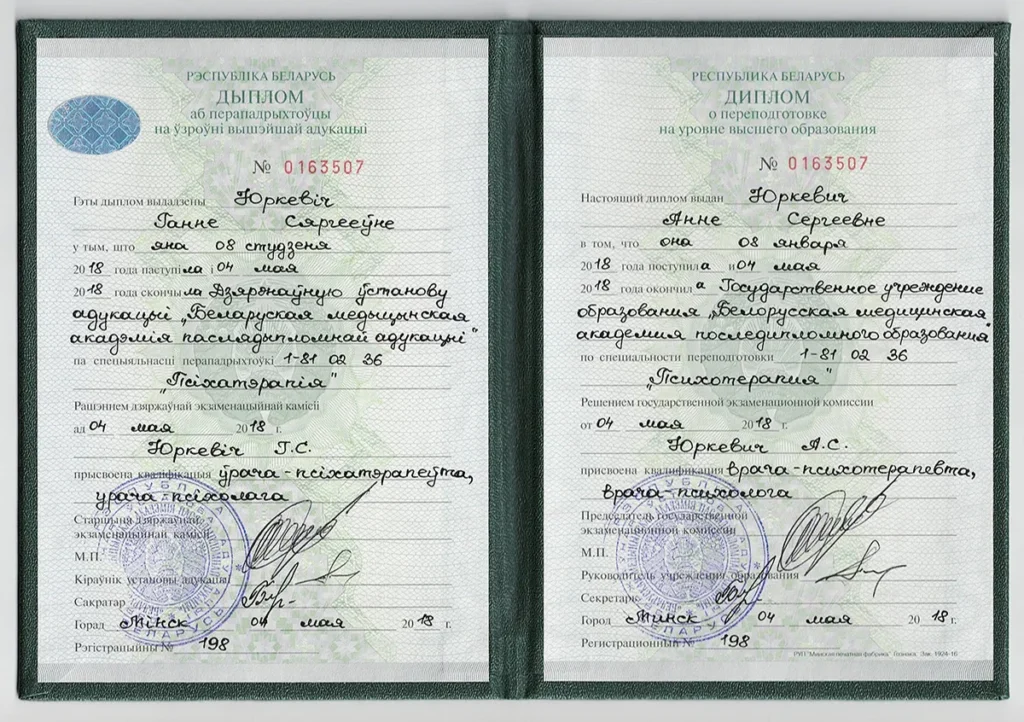 РЭСПУБЛІКА БЕЛАРУСЬ
ДЫПЛОМ
аб перападрыхтоўцы
на ўзроўні вышэйшай адукацыі
№ 0163507
Гэты дыплом выдадзены Юркевіч
Ганне Сяргееўне
у тым, што яна 08 студзеня
2018 года паступіла і 04 мая
2018 года скончыла Дзяржаўную ўстанову
адукацыі „Беларуская медыцынская
акадэмія паслядыпломнай адукацыі"
па спецыяльнасці перападрыхтоўкі 1-81 02 36
„Псіхатэрапія"
Рашэннем дзяржаўнай экзаменацыйнай камісіі
ад 04 мая 2018 г.
Юркевіч Г.С.
прысвоена кваліфікацыя ўрача-псіхатэрапеўта,
урача-псіхолага
Старшыня дзяржаўнай
экзаменацыйнай камісіі
М.П.
Кіраўнік установы адукацыі
Сакратар
Горад Мінск 04 мая 2018 г.
Рэгістрацыйны № 198
РЕСПУБЛИКА БЕЛАРУСЬ
ДИПЛОМ
о переподготовке
на уровне высшего образования
№ 0163507
Настоящий диплом выдан Юркевич
Анне Сергеевне
в том, что она 08 января
2018 года поступила и 04 мая
2018 года окончила Государственное учреждение
образования „Белорусская медицинская
академия последипломного образования"
по специальности переподготовки 1-81 02 36
„Психотерапия"
Решением государственной экзаменационной комиссии
от 04 мая 2018 г.
Юркевич А.С.
присвоена квалификация врача-психотерапевта,
врача-психолога
Председатель государственной
экзаменационной комиссии
М.П.
Руководитель учреждения образования
Секретарь
Город Минск 04 мая 2018 г.
Регистрационный № 198
РУП "Минская печатная фабрика" Гознака. Зак. 1924-16